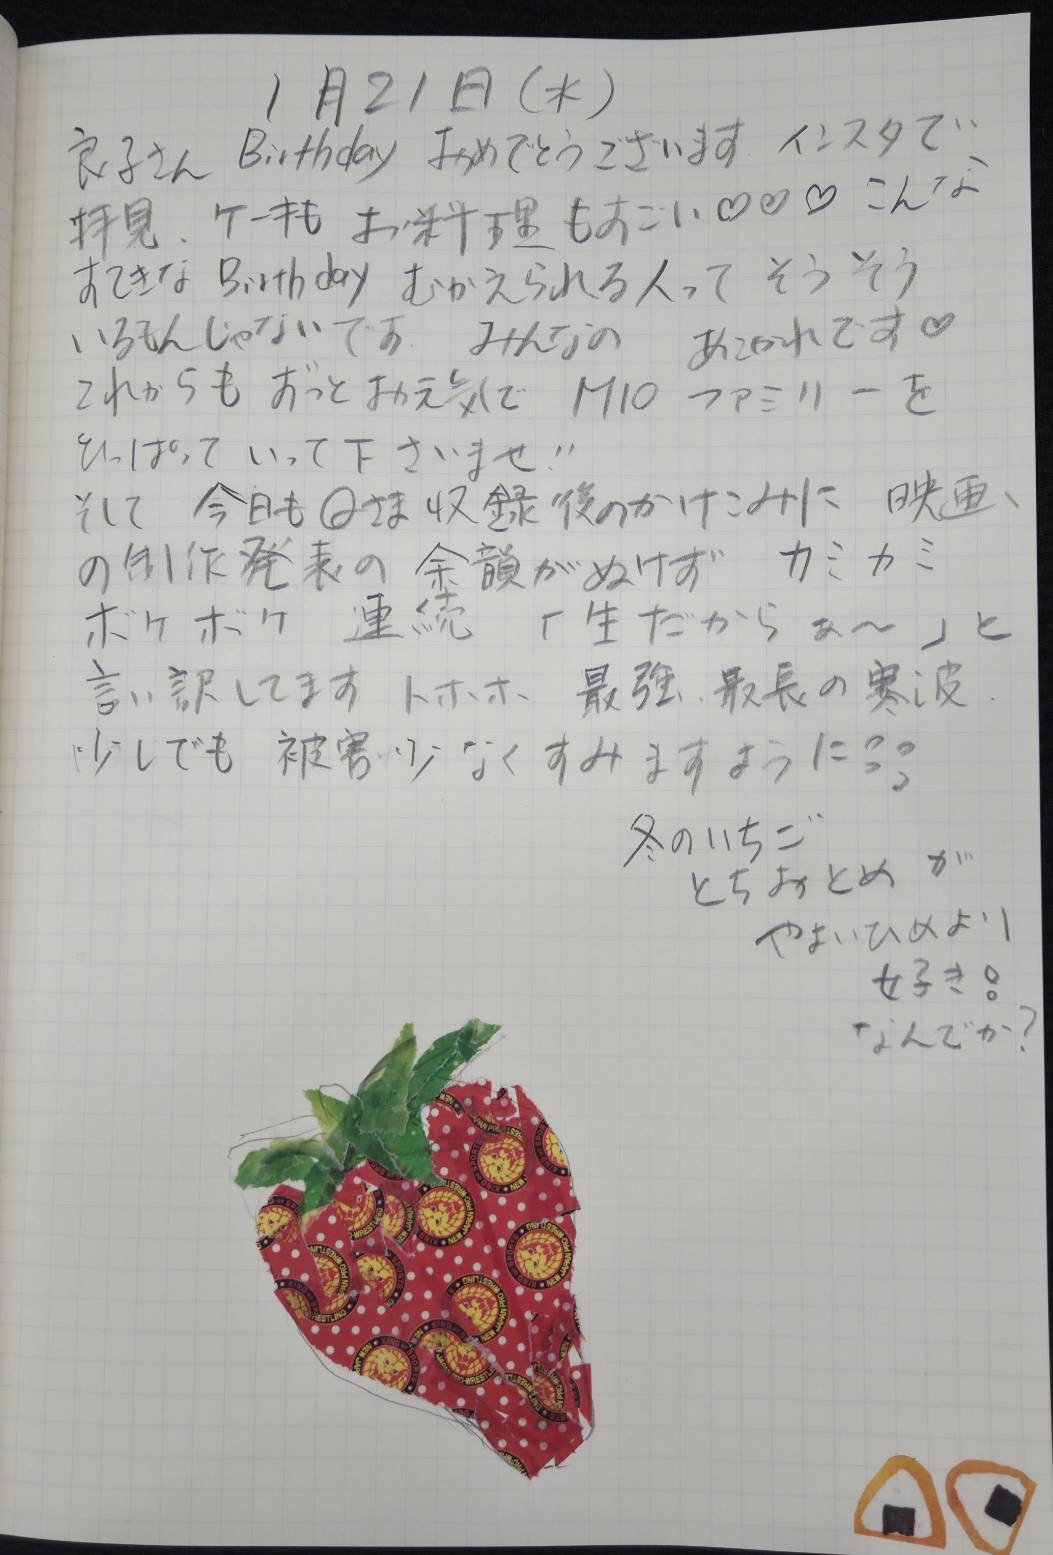 1月21日(水)
良子さん Birthday おめでとうございます インスタで
拝見、ケーキも お料理もすごい♡♡♡ こんな
すてきな Birthday むかえられる人って そうそう
いるもんじゃないです みんなの あこがれです♡
これからも ずっとお元気で M10 ファミリーを
ひっぱって いって下さいませ!!
そして 今日もQさま収録後のかけこみに 映画、
の制作発表の余韻がぬけず カミカミ
ボケボケ 連続 「生だからぁ〜」と
言い訳してます トホホ 最強、最長の寒波.
少しでも 被害少なくすみますように
冬のいちご
とちおとめ が
やよいひめより
好き!
なんでか?
NEW JAPAN PRO-WRESTLING